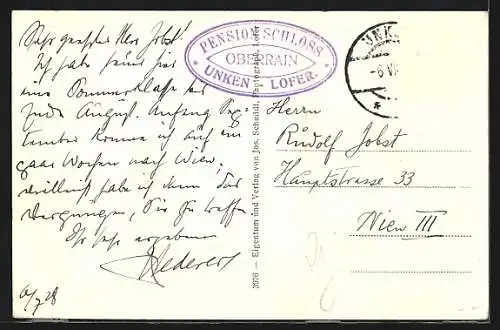 Sehr geehrter Herr Jobst!
Ich habe heuer hier
eine Sommerklasse bis
Ende August. Anfang Sep-
tember komme ich auf ein
paar Wochen nach Wien,
vielleicht habe ich dann das
Vergnügen, Sie zu treffen.
Ihr sehr ergebener
6/7 28
PENSION SCHLOSS
OBERRAIN
UNKEN LOFER.
3976 — Eigentum und Verlag von Jos. Schmidt, Photograph, Lofer
UNK
-6 VII
Herrn
Rudolf Jobst
Hauptstrasse 33
Wien III